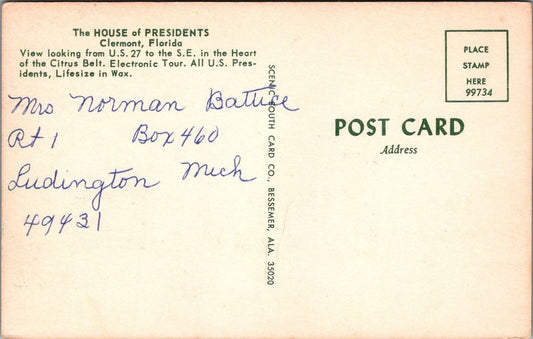 The HOUSE of PRESIDENTS
Clermont, Florida
View looking from U.S. 27 to the S.E. in the Heart
of the Citrus Belt. Electronic Tour. All U.S. Pres-
idents, Lifesize in Wax.
Mrs Norman Battice
Rt 1 Box 460
Ludington Mich
49431
SCENIC SOUTH CARD CO., BESSEMER, ALA. 35020
PLACE
STAMP
HERE
99734
POST CARD
Address